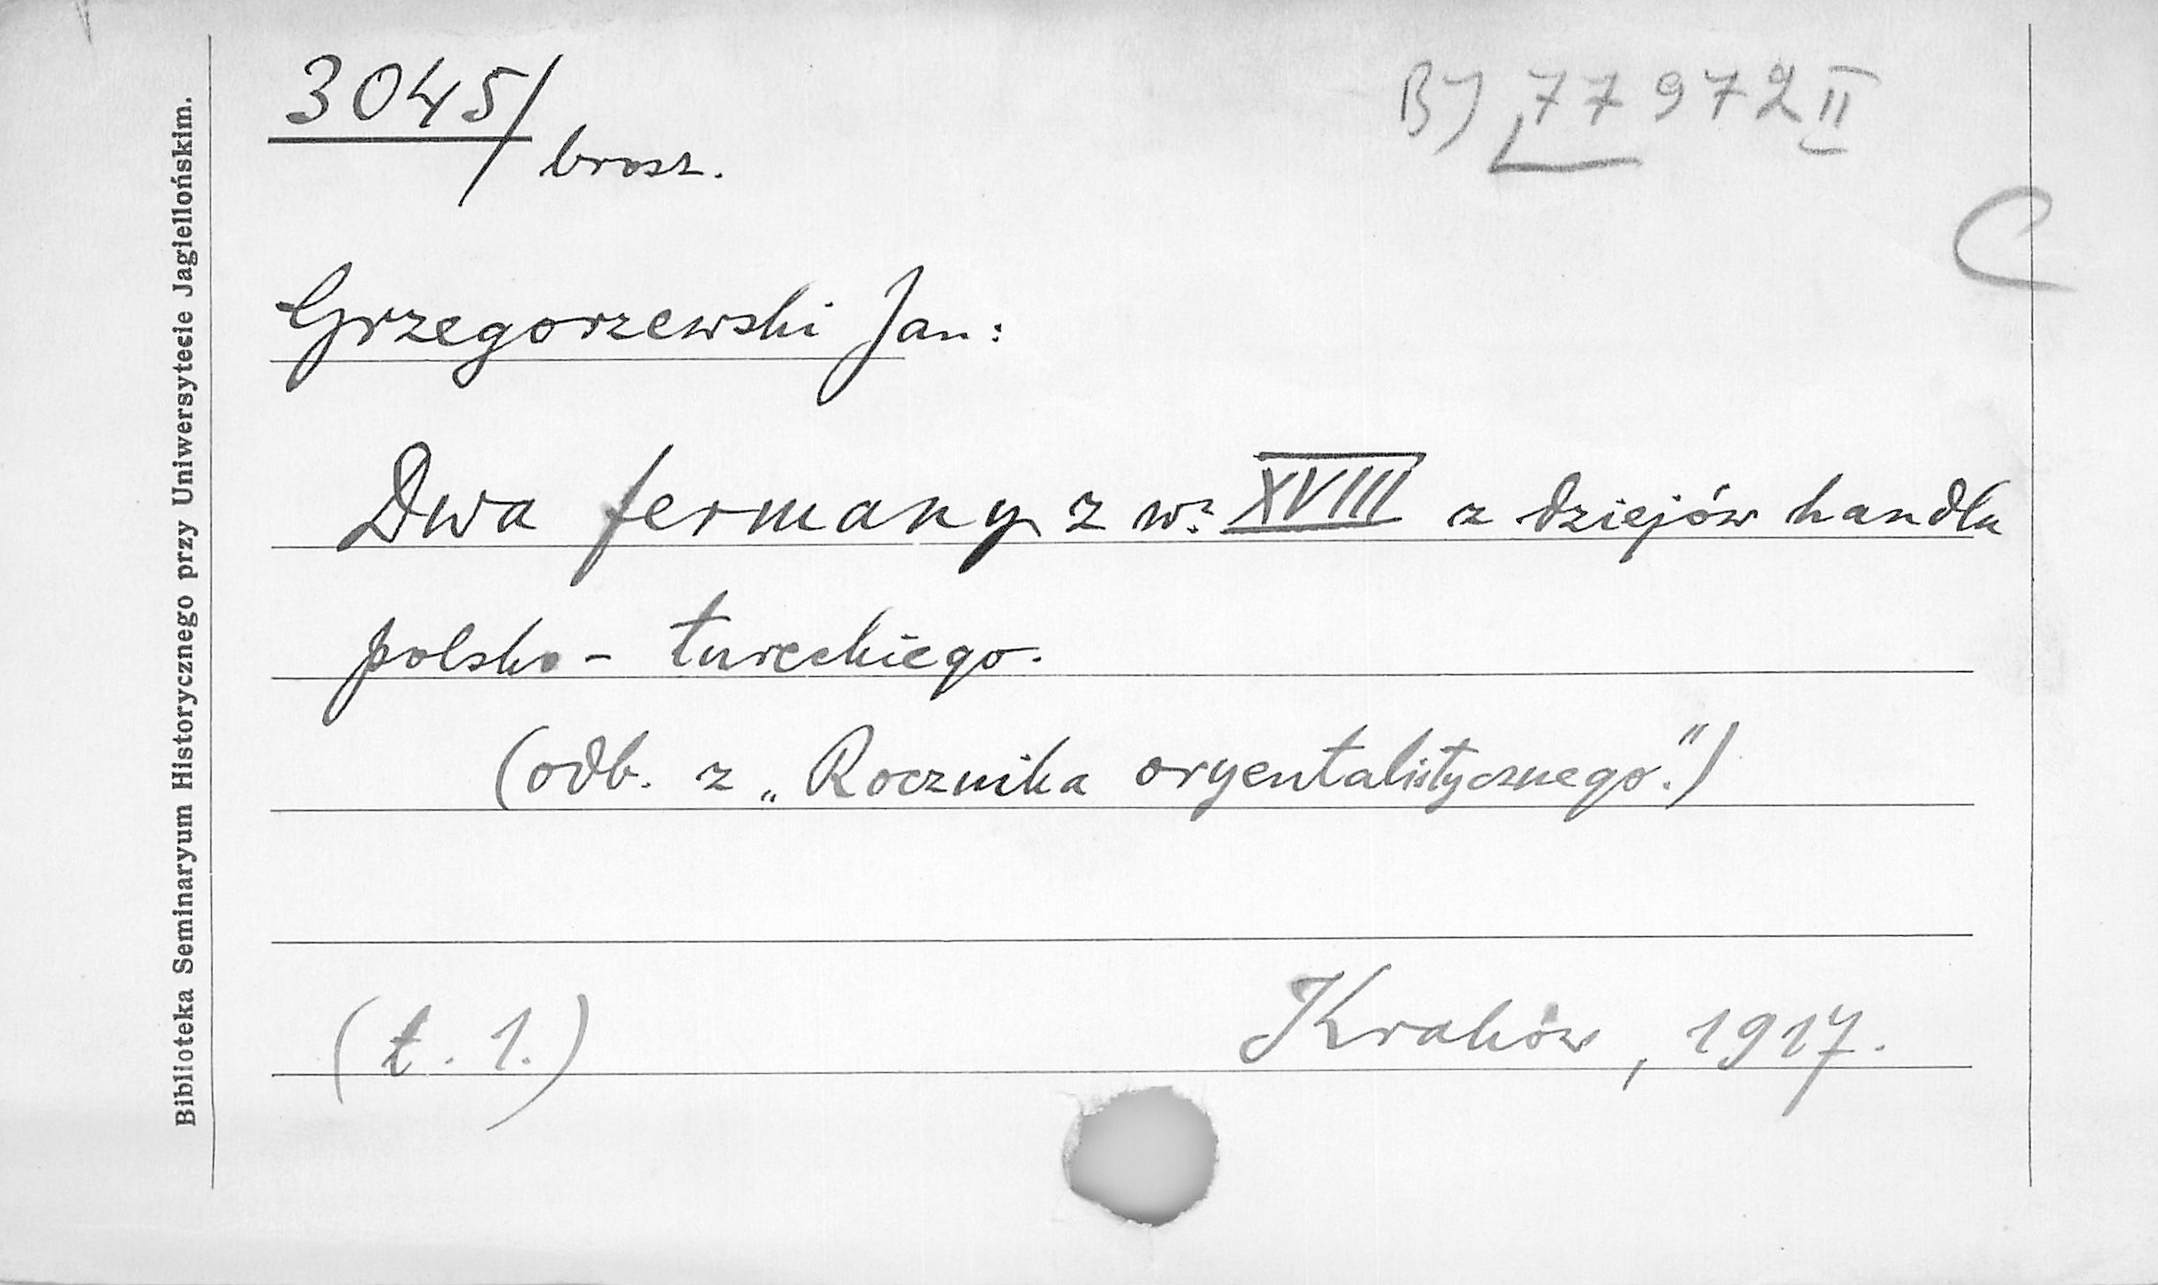 3045/brosz.
BJ 77972 II
C
Grzegorzewski Jan:
Dwa fermany z w. XVIII z dziejów handlu
polsko-tureckiego.
(odb. z „Rocznika oryentalistycznego.")
(t. 1.) Kraków, 1917.
Biblioteka Seminaryum Historycznego przy Uniwersytecie Jagiellońskim.